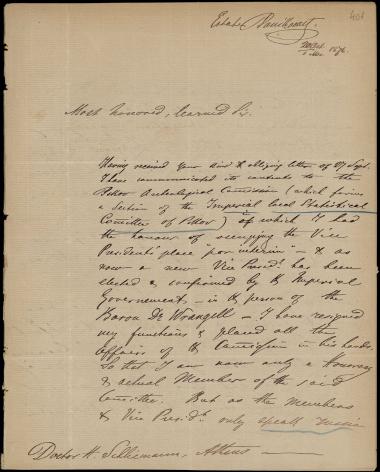 401
Estate
20 Oct.
1 Nov. 1876.
Most honored, learned Sir.
Having received your kind & obliging letter of 27 Sept.
I have communicated its contents to the
Pskov Archeological Commission (which forms
a Section of the Imperial local Statistical
Comittee of Pskov) of which I had
the honour of occupying the Vice
Presidents' place "pro interim" - & as
now a new Vice Presidt. has been
elected & confirmed by the Imperial
Governement - in the person of the
Baron De Wrangell - I have resigned
my functions & placed all the
affaires of the Comission in his hands.
So that I am now only a Honorary
& actual Member of the said
Comittee. But as the Members
& Vice Presidt. only speak
Doctor H. Schliemann, Athens